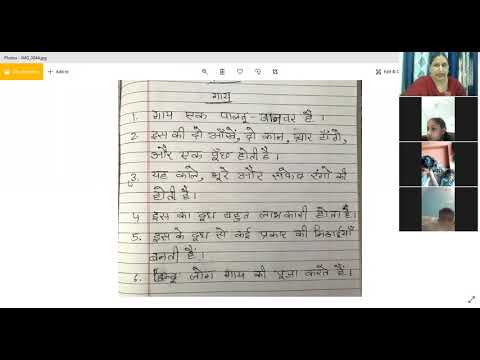 Photos - IMG_0044.jpg
Add to
Edit & C
गाय
1. गाय एक पालतू-जानवर है।
2. इस की दो आँखें, दो कान, चार टाँगे,
और एक पूँछ होती है।
3. यह काले, भूरे और सफेद रंगों में
होती है।
4. इस का दूध बहुत लाभकारी होता है।
5. इस के दूध से कई प्रकार की मिठाईयाँ
बनती हैं।
6. हिन्दू लोग गाय की पूजा करते हैं।